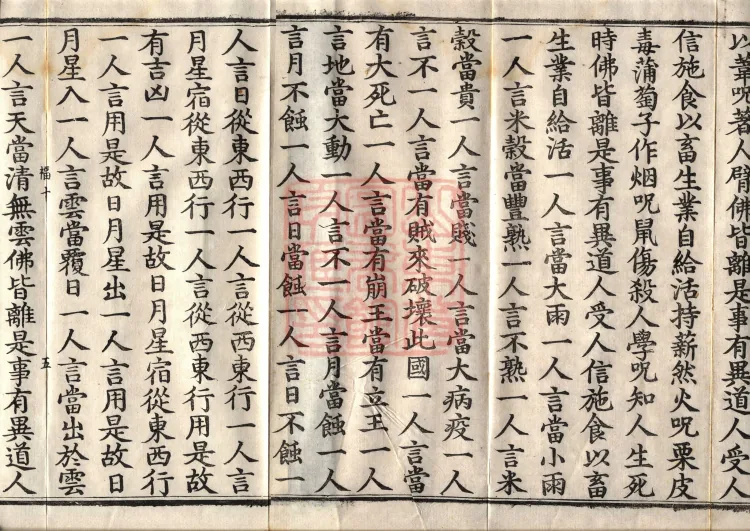 以葦呪著人臂佛皆離是事有異道人受人
信施食以畜生業自給活持薪然火呪栗皮
毒蒲萄子作烟呪鼠傷殺人學呪知人生死
時佛皆離是事有異道人受人信施食以畜
生業自給活一人言當大雨一人言當小雨
一人言米穀當豐熟一人言不熟一人言米
穀當貴一人言當賤一人言當大病疫一人
言不一人言當有賊來破壞此國一人言當
有大死亡一人言當有崩王當有立王一人
言地當大動一人言不一人言月當蝕一人
言月不蝕一人言日當蝕一人言日不蝕一
人言日從東西行一人言從西東行一人言
月星宿從東西行一人言從西東行用是故
有吉凶一人言用是故日月星宿從東西行
一人言用是故日月星出一人言用是故日
月星入一人言雲當覆日一人言當出於雲
福十 五
一人言天當清無雲佛皆離是事有異道人